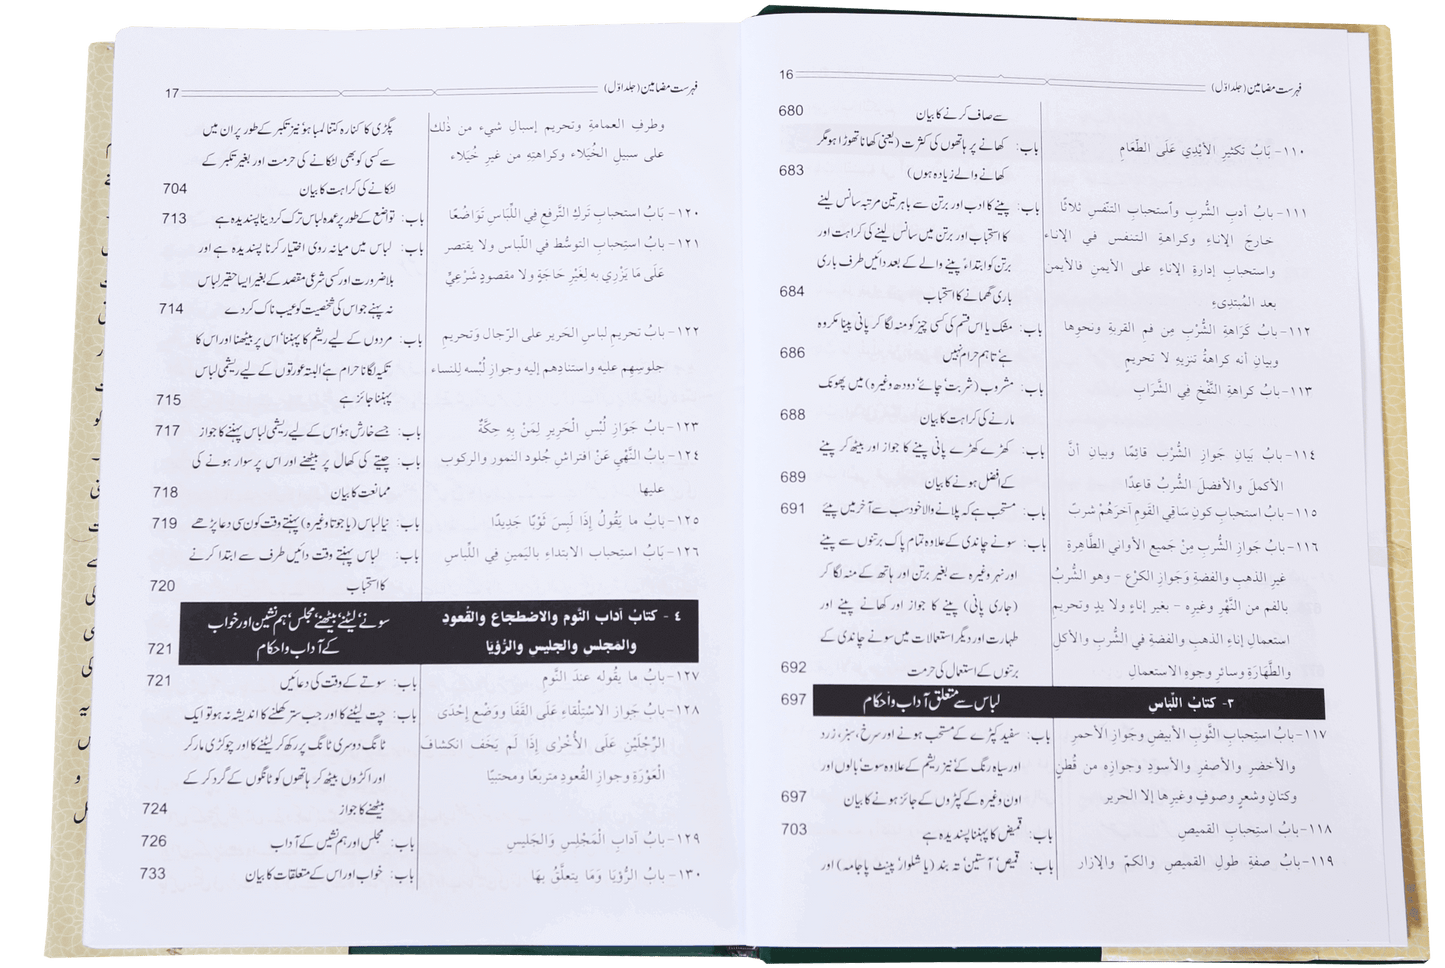 فہرست مضامین (جلد اوّل) 16
سے صاف کرنے کا بیان 680
١١٠- بَابُ تكثيرِ الأيْدِي عَلَى الطَّعَامِ باب: کھانے پر ہاتھوں کی کثرت (یعنی کھانا تھوڑا ہو مگر
کھانے والے زیادہ ہوں) 683
١١١- بابُ أدبِ الشُّربِ واستحبابِ التنفّسِ ثلاثًا باب: پینے کا ادب اور برتن سے باہر تین مرتبہ سانس لینے
خارجَ الإناءِ وكراهةِ التنفس في الإناء کا استحباب اور برتن میں سانس لینے کی کراہت اور
واستحبابِ إدارةِ الإناءِ على الأيمنِ فالأيمنِ برتن کو ابتداءً پینے والے کے بعد دائیں طرف باری
بعد المُبتدِىءِ باری گھمانے کا استحباب 684
١١٢- بابُ كَرَاهةِ الشُّرْبِ مِن فمِ القربةِ ونحوِها باب: مشک یا اس قسم کی کسی چیز کو منہ لگا کر پانی پینا مکروہ
وبيانِ أنه كراهةُ تنزيهٍ لا تحريمٍ ہے، تاہم حرام نہیں 686
١١٣- بابُ كراهةِ النَّفْخِ فِي الشَّرَابِ باب: مشروب (شربت، چائے، دودھ وغیرہ) میں پھونک
مارنے کی کراہت کا بیان 688
١١٤- بابُ بَيَانِ جَوازِ الشُّرْبِ قائِمًا وبيانِ أنَّ باب: کھڑے کھڑے پانی پینے کا جواز اور بیٹھ کر پینے
الأكملَ والأفضلَ الشُّربُ قاعِدًا کے افضل ہونے کا بیان 689
١١٥- بابُ استحبابِ كونِ سَاقِي القومِ آخرَهُمْ شربًا باب: مستحب ہے کہ پلانے والا خود سب سے آخر میں پیئے 691
١١٦- بابُ جَوازِ الشُّربِ مِنْ جَميعِ الأواني الطَّاهِرةِ باب: سونے چاندی کے علاوہ تمام پاک برتنوں سے پینے
غيرِ الذهبِ والفضةِ وَجَوازِ الكَرْعِ - وهو الشُّربُ اور نہر وغیرہ سے بغیر برتن اور ہاتھ کے منہ لگا کر
بالفمِ من النَّهْرِ وغيرِه - بغيرِ إناءٍ ولا يدٍ وتحريمِ (جاری پانی) پینے کا جواز اور کھانے پینے اور
استعمالِ إناءِ الذهبِ والفضةِ في الشُّربِ والأكلِ طہارت اور دیگر استعمالات میں سونے چاندی کے
والطَّهَارَةِ وسائرِ وجوهِ الاستعمالِ برتنوں کے استعمال کی حرمت 692
٣- كتابُ اللِّبَاسِ لباس سے متعلق آداب و احکام 697
١١٧- بابُ استِحبابِ الثَّوبِ الأبيضِ وجَوازِ الأحمرِ باب: سفید کپڑے کے مستحب ہونے اور سرخ، سبز، زرد
والأخضرِ والأصفرِ والأسودِ وجوازِه من قُطنٍ اور سیاہ رنگ کے نیز ریشم کے علاوہ سوت، بالوں اور
وكتانٍ وشعرٍ وصوفٍ وغيرِها إلا الحرير اون وغیرہ کے کپڑوں کے جائز ہونے کا بیان 697
١١٨- بابُ استحبابِ القميصِ باب: قمیض کا پہننا پسندیدہ ہے 703
١١٩- بابُ صفةِ طولِ القميصِ والكمِّ والإزارِ باب: قمیص، آستین، تہ بند (یا شلوار، پینٹ پاجامہ) اور
فہرست مضامین (جلد اوّل) 17
وطرفِ العمامةِ وتحريمِ إسبالِ شيء من ذٰلك پگڑی کا کنارہ کتنا لمبا ہو، نیز تکبر کے طور پر ان میں
على سبيلِ الخُيَلاء وكراهتِهِ من غيرِ خُيَلاء سے کسی کو بھی لٹکانے کی حرمت اور بغیر تکبر کے
لٹکانے کی کراہت کا بیان 704
١٢٠- بَابُ استحبابِ تَركِ التَّرفعِ فِي اللِّبَاسِ تَوَاضُعًا باب: تواضع کے طور پر عمدہ لباس ترک کر دینا پسندیدہ ہے 713
١٢١- بابُ استِحبابِ التوسُّطِ في اللّباس ولا يقتصر باب: لباس میں میانہ روی اختیار کرنا پسندیدہ ہے اور
عَلَى مَا يَزْرِي به لِغَيْرِ حَاجَةٍ ولا مقصودٍ شَرْعِيٍّ بلاضرورت اور کسی شرعی مقصد کے بغیر ایسا حقیر لباس
نہ پہنے جو اس کی شخصیت کو عیب ناک کر دے 714
١٢٢- بابُ تحريمِ لباسِ الحَريرِ على الرِّجال وَتحريمِ باب: مردوں کے لیے ریشم کا پہننا، اس پر بیٹھنا اور اس کا
جلوسِهم عليه واستنادِهم إليه وجوازِ لُبْسِه لِلنساء تکیہ لگانا حرام ہے، البتہ عورتوں کے لیے ریشمی لباس
پہننا جائز ہے 715
١٢٣- بابُ جَوَازِ لُبْسِ الْحَرِيرِ لِمَنْ بِهِ حِكَّةٌ باب: جسے خارش ہو، اس کے لیے ریشمی لباس پہننے کا جواز 717
١٢٤- بابُ النَّهْيِ عَنْ افتراشِ جُلودِ النمورِ والركوبِ باب: چیتے کی کھال پر بیٹھنے اور اس پر سوار ہونے کی
عليها ممانعت کا بیان 718
١٢٥- بابُ ما يَقُولُ إِذَا لَبِسَ ثَوْبًا جَدِيدًا باب: نیا لباس (یا جوتا وغیرہ) پہنتے وقت کون سی دعا پڑھے 719
١٢٦- بَابُ استحباب الابتداءِ باليَمينِ فِي اللِّباسِ باب: لباس پہنتے وقت دائیں طرف سے ابتدا کرنے
کا استحباب 720
٤ - كتابُ آدابِ النَّوم والاضطجاعِ والقُعودِ سونے، لیٹنے، بیٹھنے، مجلس، ہم نشین اور خواب
والمَجلسِ والجليسِ والرُّؤيَا کے آداب و احکام 721
١٢٧- بابُ ما يقُوله عندَ النَّومِ باب: سوتے کے وقت کی دعائیں 721
١٢٨- بابُ جَوازِ الاسْتِلْقاءِ عَلَى القَفَا ووَضْعِ إحْدَى باب: چت لیٹنے کا اور جب ستر کھلنے کا اندیشہ نہ ہو تو ایک
الرِّجْلَيْنِ عَلَى الأُخْرَى إذَا لَم يَخَف انكشافَ ٹانگ دوسری ٹانگ پر رکھ کر لیٹنے کا اور چوکڑی مار کر
الْعَوْرَةِ وجوازِ القُعودِ متربعًا ومحتبيًا اور اکڑوں بیٹھ کر ہاتھوں کو ٹانگوں کے گرد کر کے
بیٹھنے کا جواز 724
١٢٩- بابُ آدابِ الْمَجْلِسِ وَالجَليسِ باب: مجلس اور ہم نشیں کے آداب 726
١٣٠- بابُ الرُّؤيَا وَمَا يتعلَّقُ بِهَا باب: خواب اور اس کے متعلقات کا بیان 733